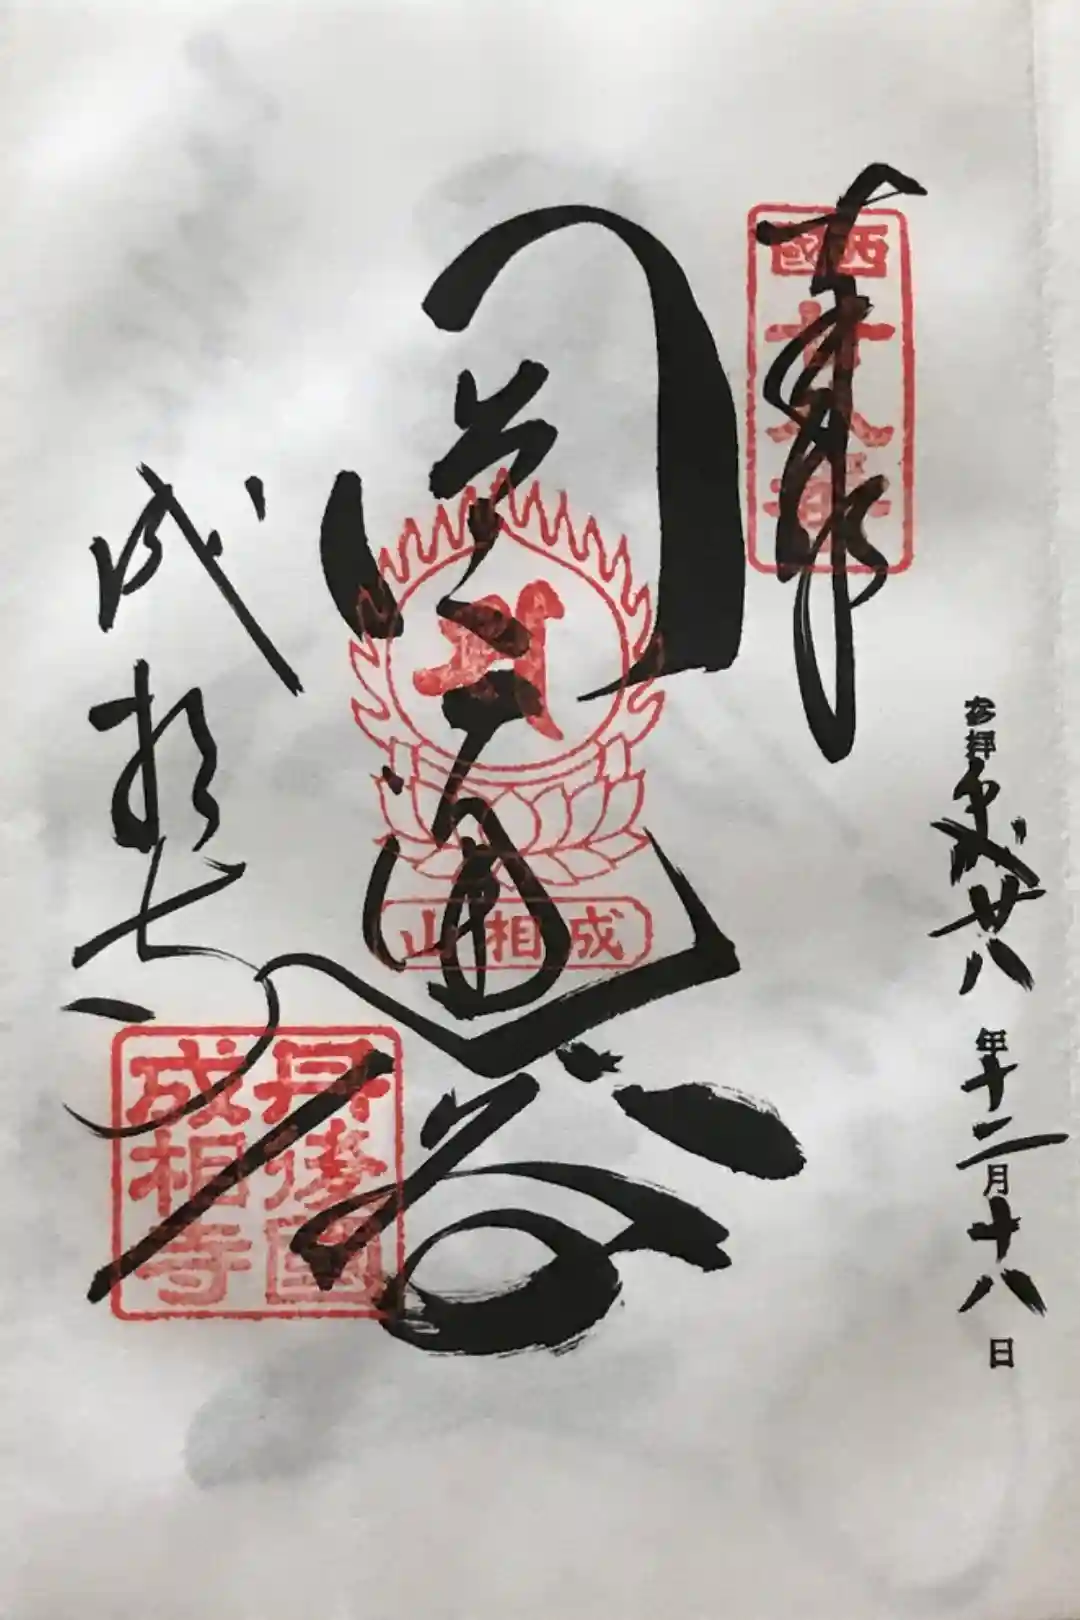 奉拝
西國
廿八番
参拝 平成廿八年十二月十八日
圓通閣
成相山
成相寺
丹後國
成相寺